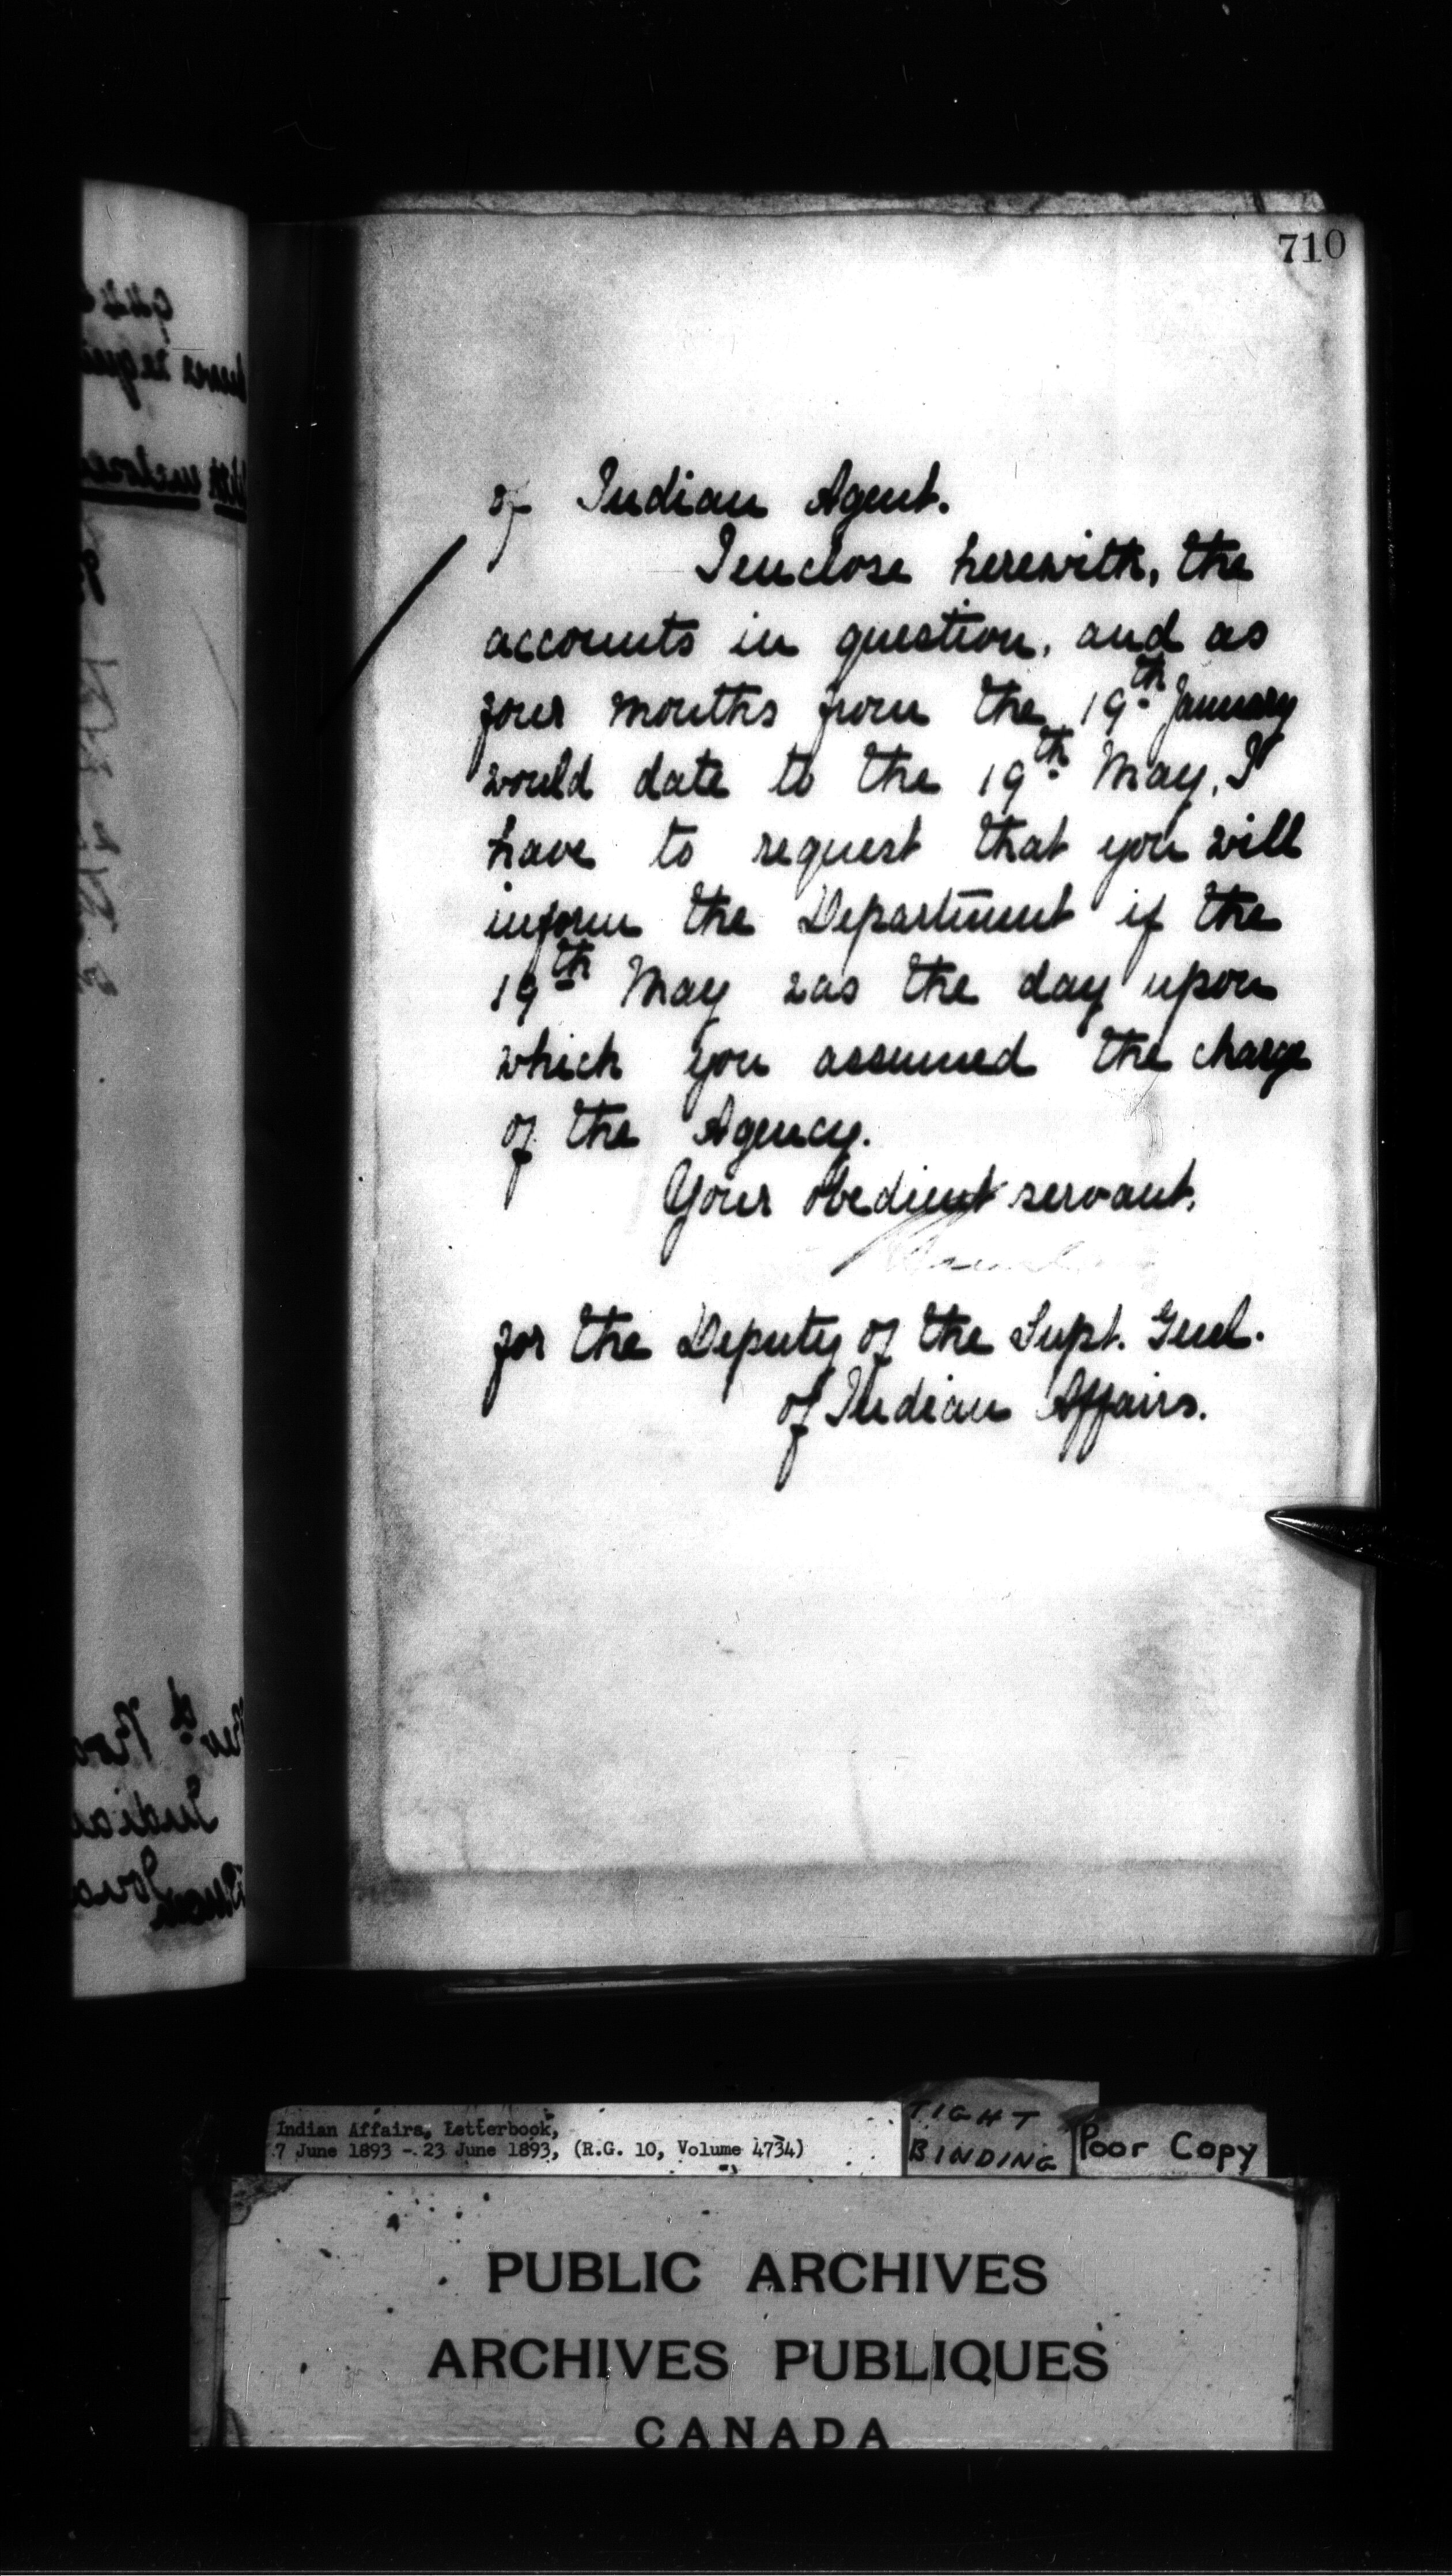 710
of Indian Agent.
I enclose herewith, the
accounts in question, and as
four months from the 19th January
would date to the 19th May, I
have to request that you will
inform the Department if the
19th May was the day upon
which you assumed the charge
of the Agency.
Your obedient servant,
for the Deputy of the Supt. Genl.
of Indian Affairs.
Indian Affairs, Letterbook,
7 June 1893 - 23 June 1893, (R.G. 10, Volume 4734)
TIGHT
BINDING
Poor Copy
PUBLIC ARCHIVES
ARCHIVES PUBLIQUES
CANADA